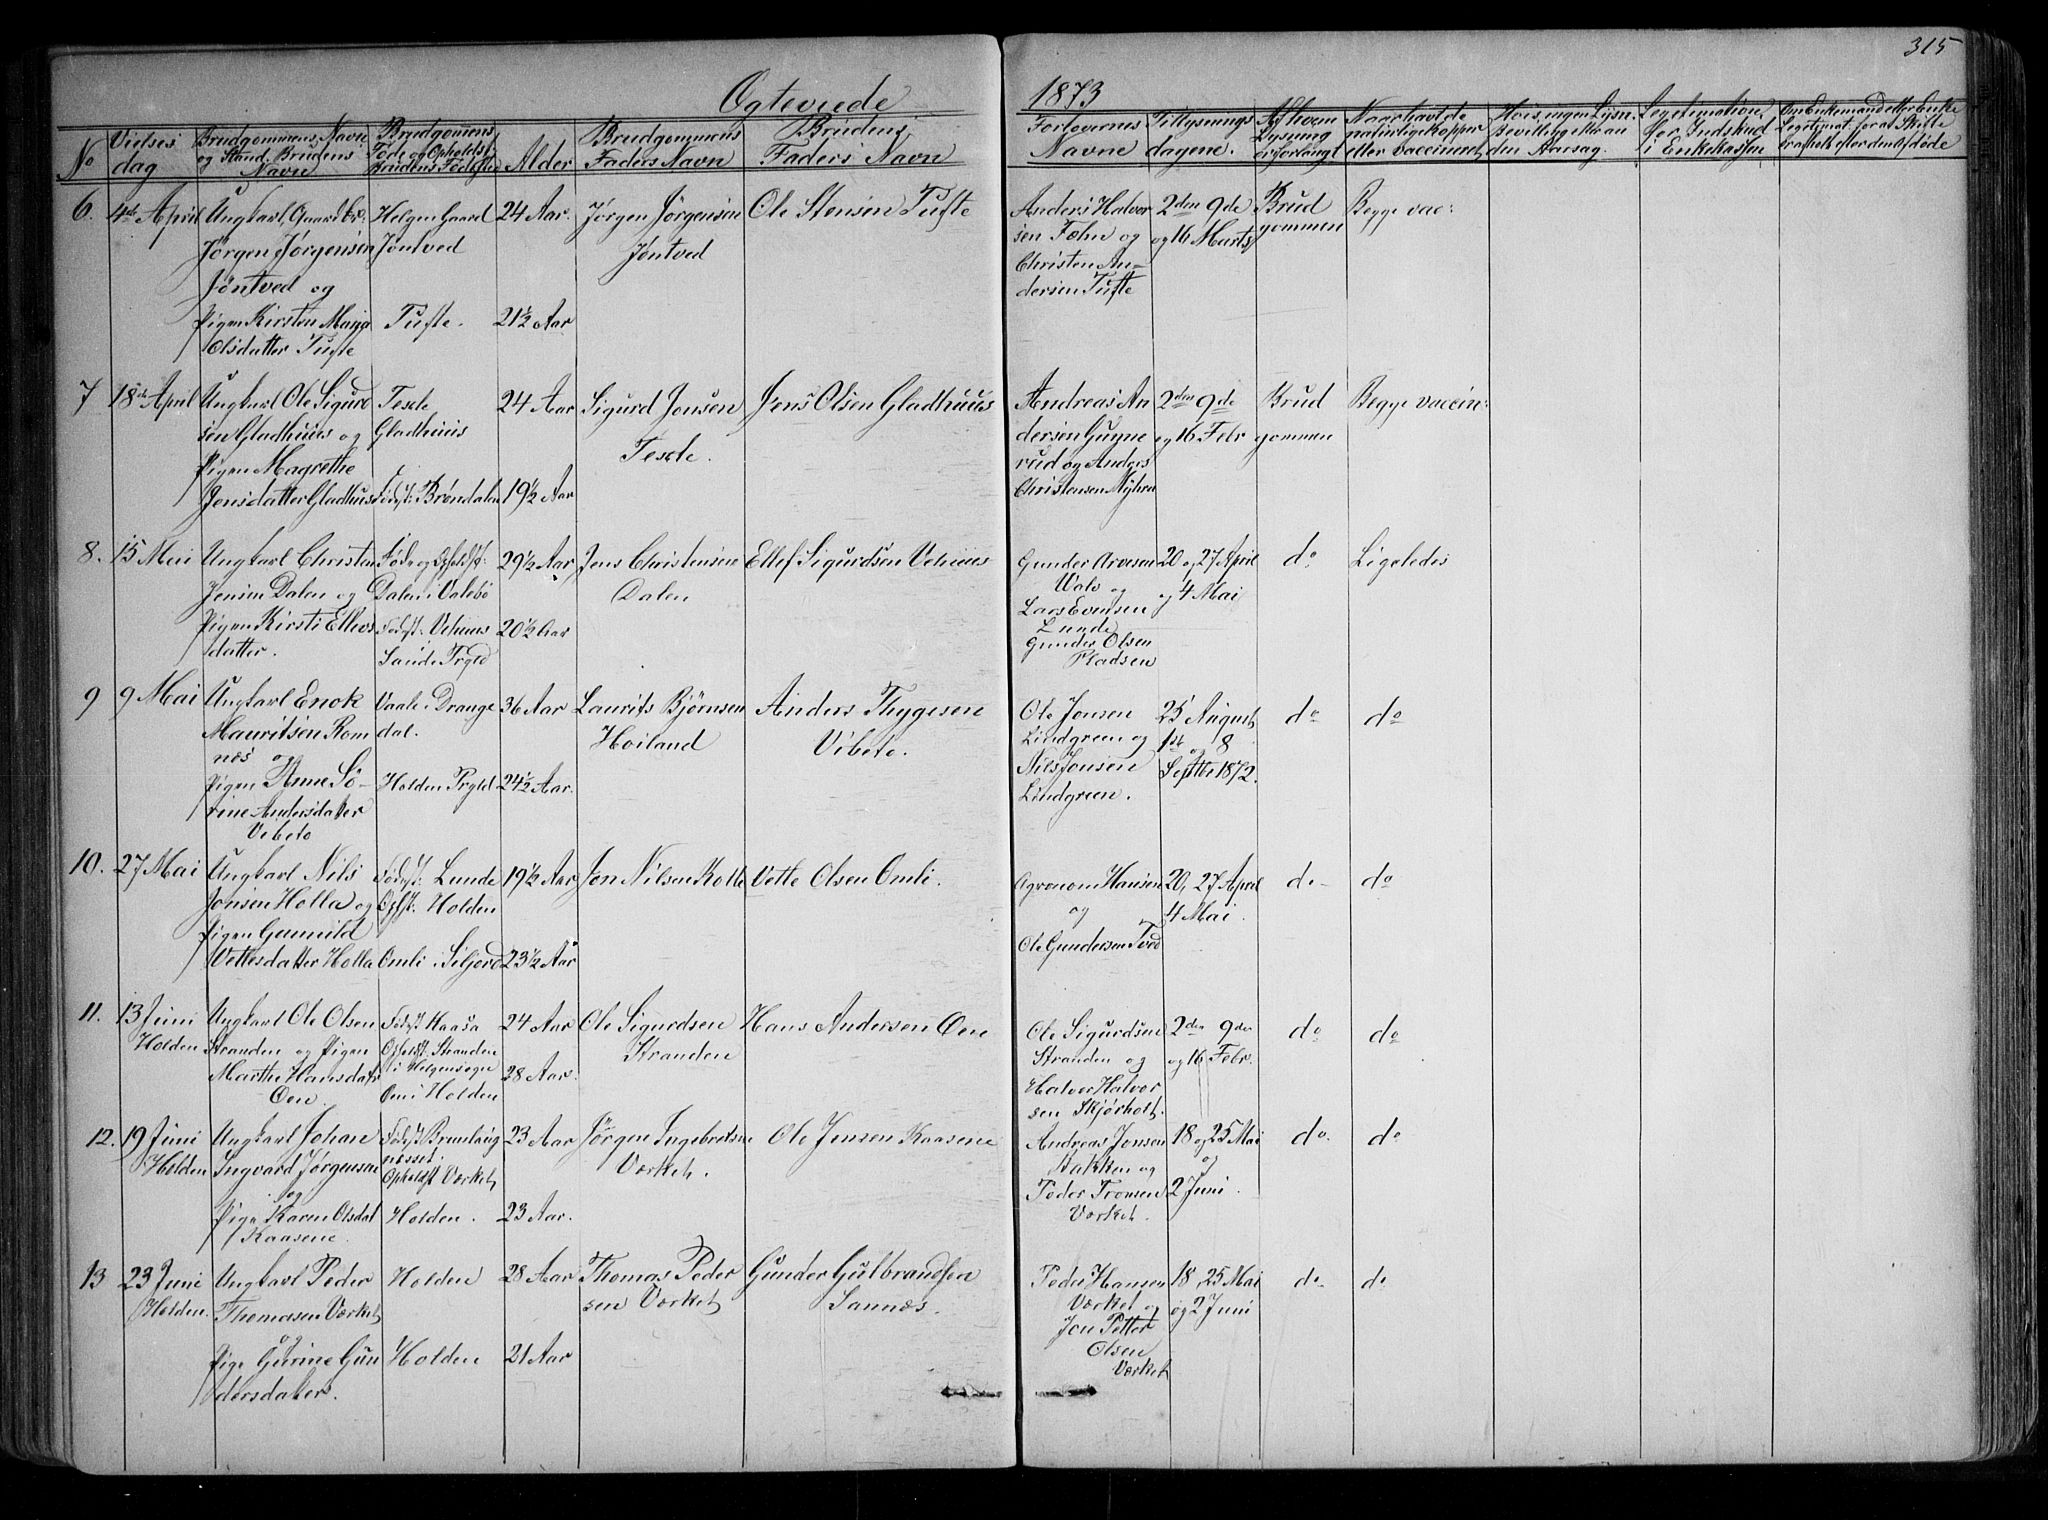 315
Ogteviede 1873
No
Vielses
dag
Brudgommens Navn
og Stand, Brudens
Navn
Brudgomens
Føde og Opholdst.
Brudens Fødested
Alder
Brudgommens
Faders Navn
Brudens
Faders Navn
Forlovernes
Navne
Tillysnings
dagene.
Af hvem
Lysning
er forlangt
Naar havt de
naturlige kopper
eller vaccineret
Hvis ingen Lysn.
Bevilling eller an
den Aarsag.
Legetimatione
for Indskud
i Enkekassen
Om Enkemand eller Enke
Legetimat. for at Skifte
6. 4de April
Ungkarl, Gaardbr.
Jörgen Jørgensen
Jøntved og
Pigen Kirsten Maria
Olsdatter Tufte
Helgen Gaard
Jøntved
Tufte.
24 Aar.
21½ Aar
Jørgen Jørgensen
Jøntved
Ole Stensen Tufte
Anders Halvor
sen Fæhn og
Christen An-
dersen Tufte
2den 9de
og 16 Marts
Brud
gommen
Begge vac:
7 18de April
Ungkarl Ole Sigurd
sen Gladhuus og
Pigen Magrethe
Jensdatter Gladhus
Texle
Gladhuus
Fødst: Brøndalen
24 Aar
19½ Aar
Sigurd Jonsen
Texle.
Jens Olsen Gladhuus
Andreas An
dersen Gurme
rud og Anders
Christensen Myhra
2den 9de
og 16 Febr
Brud
gommen
Begge vaccin:
8. 15 Mai
Ungkarl Christen
Jensen Dalen og
Pigen Kirsti Ellevs
datter.
Føde og Opholdst:
Dalen i Valebö
Fødst: Vehuus
Saude Prgld
29½ Aar
20½ Aar
Jens Christensen
Dalen
Ellef Sigurdsen Vehuus
Gunder Arvesen
Wala og
Lars Evensen
Lunde
Gunder Olsen
Pladsen
20 og 27 April
og 4 Mai
do
Ligeledes
9 9 Mai
Ungkarl Enok
Mauritsen Rom
næs og
Pigen Anne Sö-
rine Andersdatter
Vibeto
Vaale i Drange
dal.
Holden Prgld
36 Aar
24½ Aar.
Laurits Bjørnsen
Hoiland
Anders Thygesen
Vibeto.
Ole Jonsen
Lindgreen og
Nils Jonsen
Lindgreen.
25 August
1st og 8
Septbr 1872.
do
do
10. 27 Mai
Ungkarl Nils
Jonsen Holla og
Pigen Gunnild
Vettesdatter Holla
Fødst: Lunde
Ophst: Holden
Omli i Siljord
19½ Aar
23½ Aar
Jon Nilsen Kolte
Vette Olsen Omli.
Agronom Hansen
og
Ole Gundersen Tved
20, 27 April
4 Mai.
do -
do
11. 13 Juni
Holden
Ungkarl Ole Olsen
Stranden og Pigen
Marthe Hansdatr
Oen.
Fødst Kaasa
Opholdst: Stranden
i Helgensogn
Oen i Holden
24 Aar
28 Aar.
Ole Sigurdsen
Stranden
Hans Andersen Oen
Ole Sigurdsen
Stranden og
Halvor Halvor
sen Skjørholt.
2den 9de
og 16 Febr.
do
do
12. 19 Juni
Holden
Ungkarl Johan
Ingvard Jørgensen
og
Pige Karen Olsdat
Kaasene.
Fødst Brunlaug
næsset.
Opholdst Værket
Holden.
23 Aar
23 Aar.
Jörgen Ingebretsen
Værket.
Ole Jensen Kaasene
Andreas Jonsen
Hakken og
Peder Tronsen
Værket.
18 og 25 Mai
og
2 Juni.
do.
do
13 23 Juni
Holden.
Ungkarl Peder
Thomasen Værket
og
Pige Gurine Gun
dersdatter.
Holden
Holden
28 Aar
21 Aar
Thomas Peder
sen Værket
Gunder Gulbrandsen
Sannæs.
Peder Hansen
Værket og
Jon Petter
Olsen
Værket
18, 25 Mai
og 2 Juni
do-
do